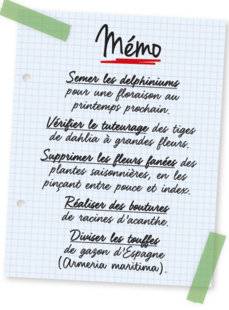 Mémo
Semer les delphiniums
pour une floraison au
printemps prochain.
Vérifier le tuteurage des tiges
de dahlia à grandes fleurs.
Supprimer les fleurs fanées des
plantes saisonnières, en les
pinçant entre pouce et index.
Réaliser des boutures
de racines d'acanthe.
Diviser les touffes
de gazon d'Espagne
(Armeria maritima).